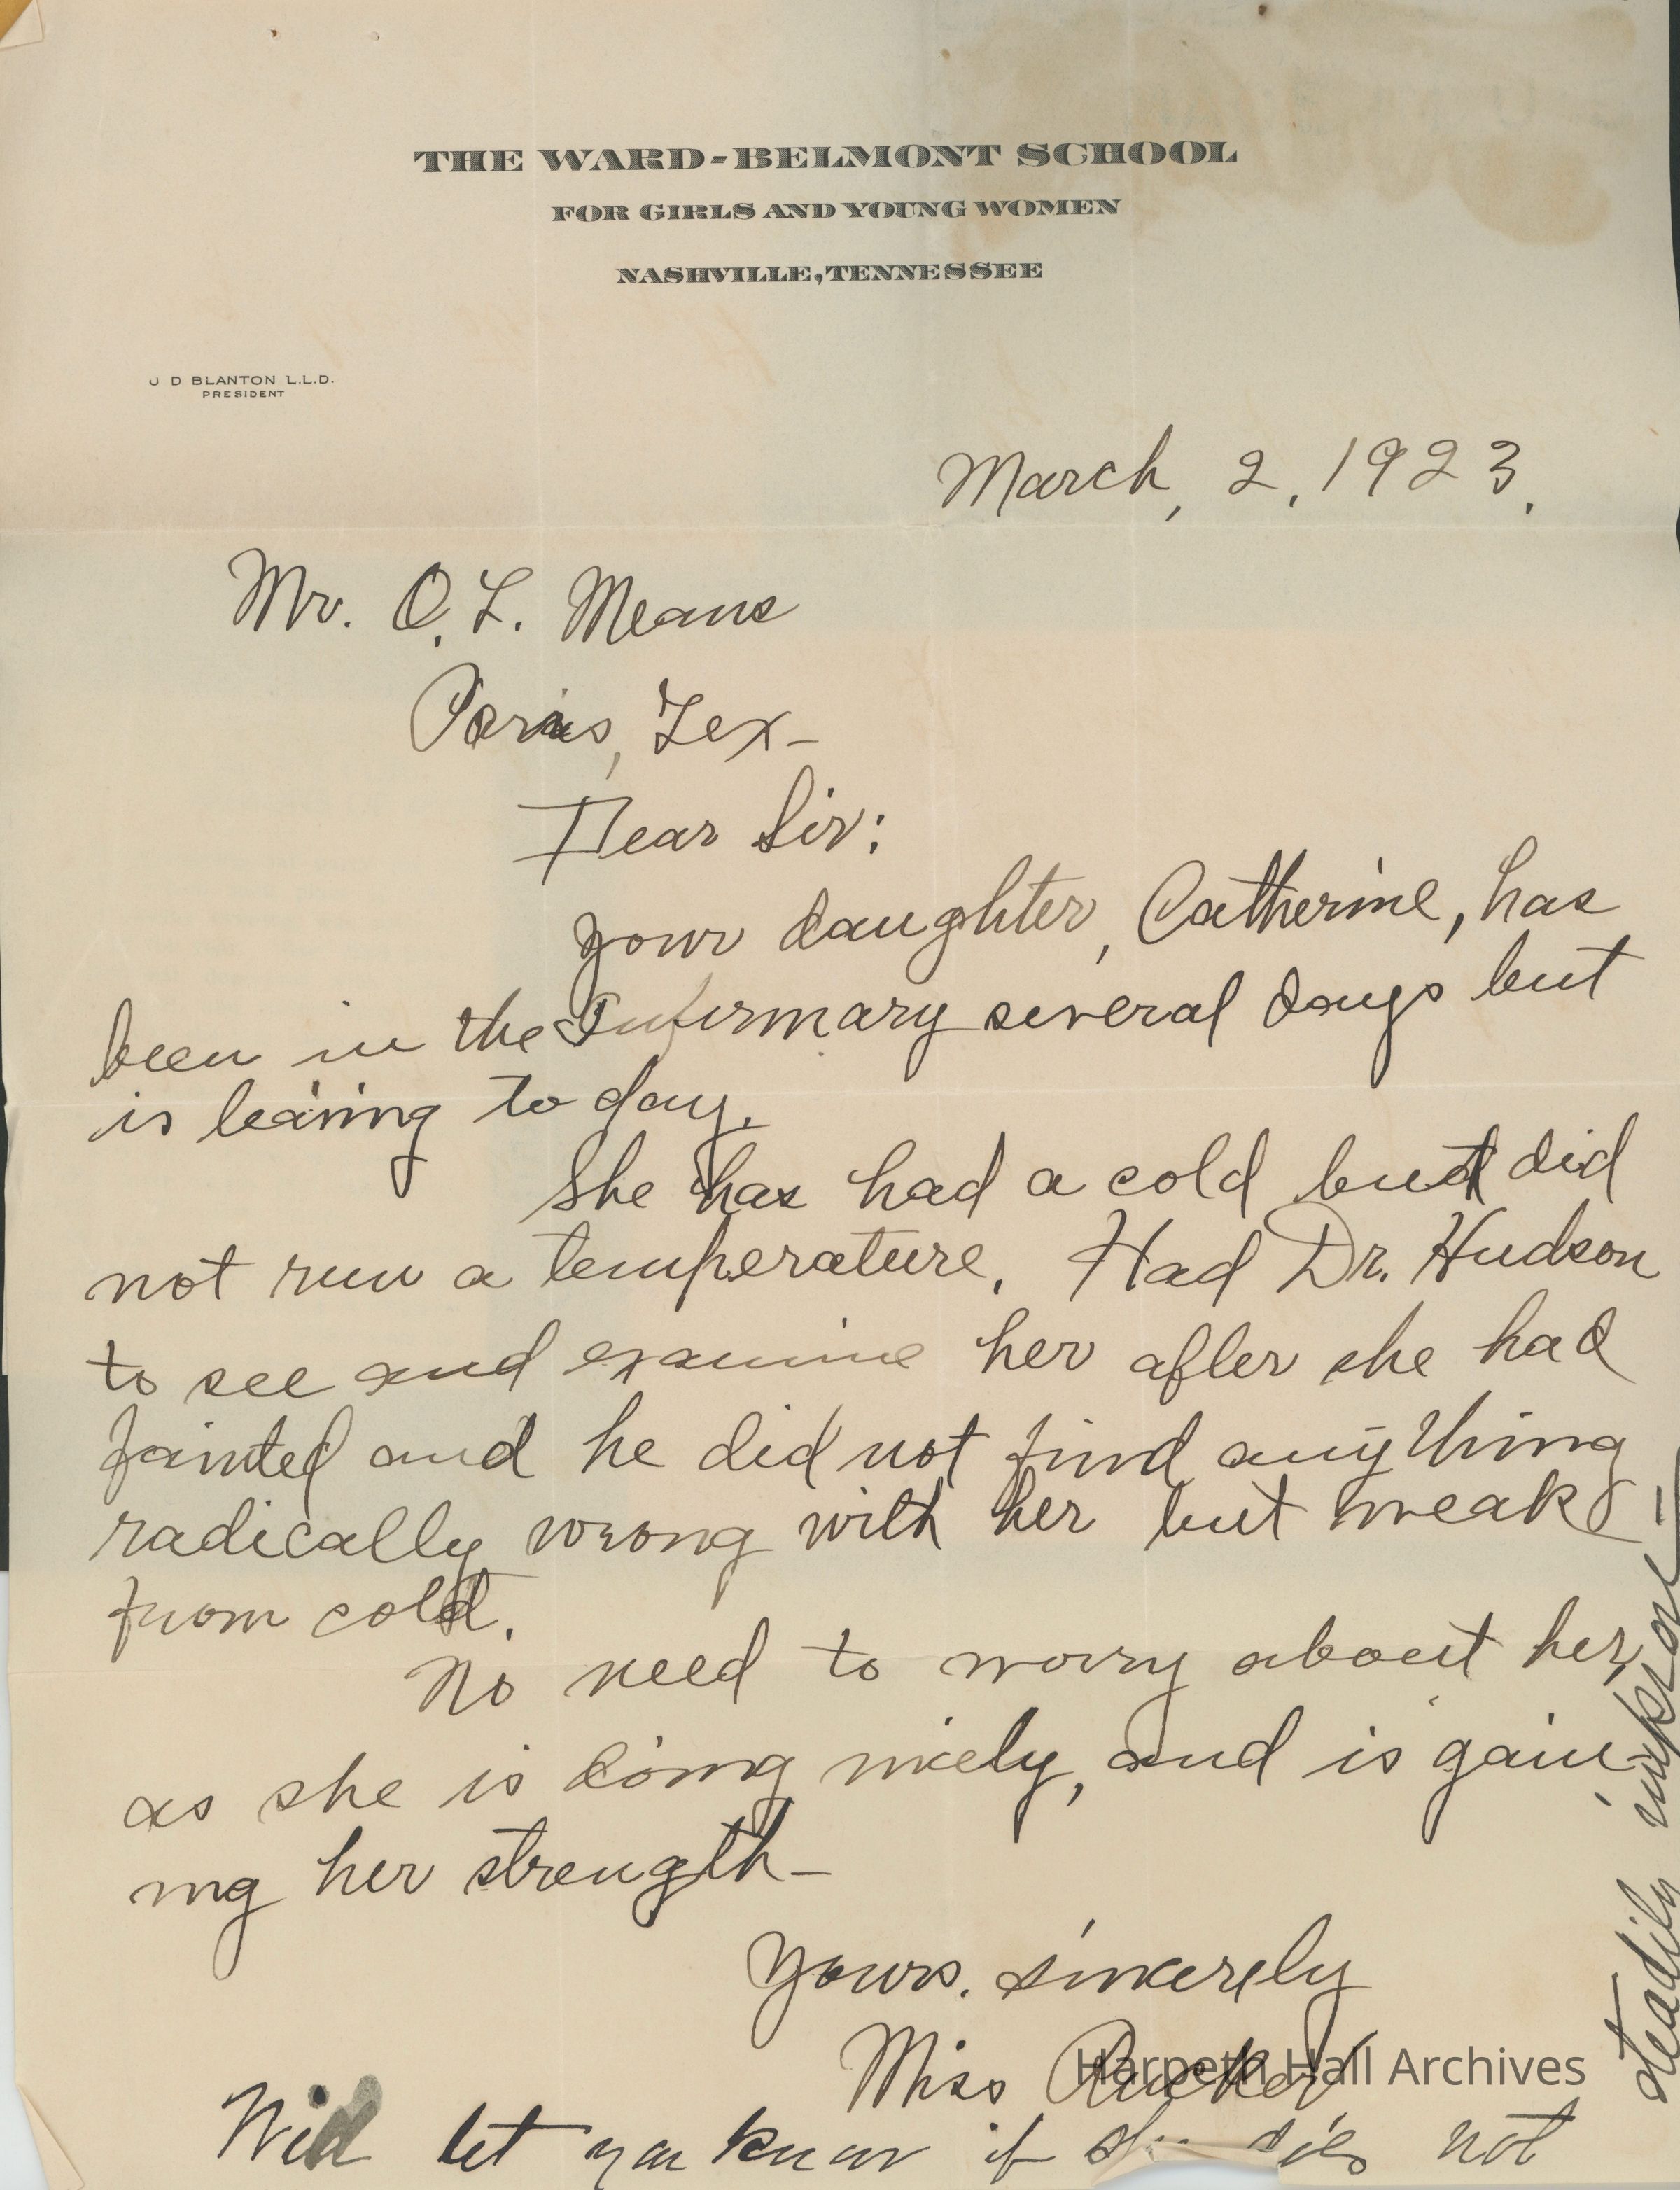 THE WARD-BELMONT SCHOOL
FOR GIRLS AND YOUNG WOMEN
NASHVILLE, TENNESSEE
J D BLANTON L.L.D.
PRESIDENT
March, 2, 1923.
Mr. O. L. Means
Paris, Tex-
Dear Sir:
Your daughter, Catherine, has
been in the Infirmary several days but
is leaving to day.
She has had a cold but did
not run a temperature. Had Dr. Hudson
to see and examine her after she had
fainted and he did not find anything
radically wrong with her but weak
from cold.
No need to worry about her,
as she is doing nicely, and is gain-
ing her strength-
Yours. sincerely
Miss Rucker
Will let you know if she does not
steadily improve-
Harpeth Hall Archives